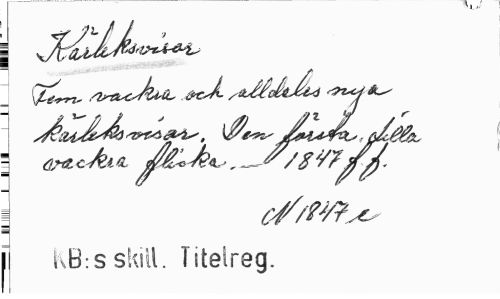 Kärleksvisor
Fem vackra och alldeles nya
kärleksvisor. Den första: Lilla
vackra flicka. — 1847 ff.
N 1847 e
KB:s skill. Titelreg.